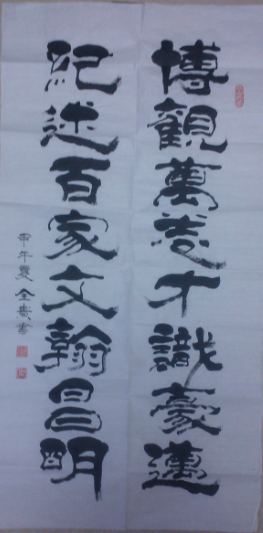 博觀萬卷才識豪邁
紀述百家文翰昌明
甲午夏全貴書